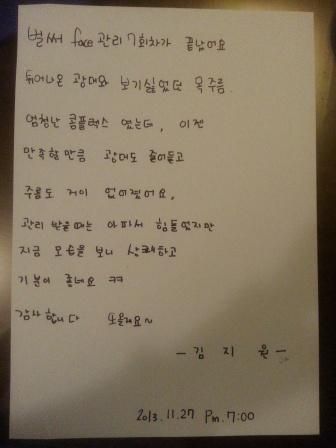 벌써 face 관리 7회차가 끝났어요
튀어나온 광대와 보기싫었던 목주름.
엄청난 콤플렉스 였는데, 이젠
만족할만큼 광대도 줄어들고
주름도 거이 없어졌어요,
관리 받을때는 아파서 힘들었지만
지금 모습을 보니 상쾌하고
기분이 좋네요 ㅋㅋ
감사합니다 또올게요~
- 김지원 -
2013.11.27 Pm.7:00